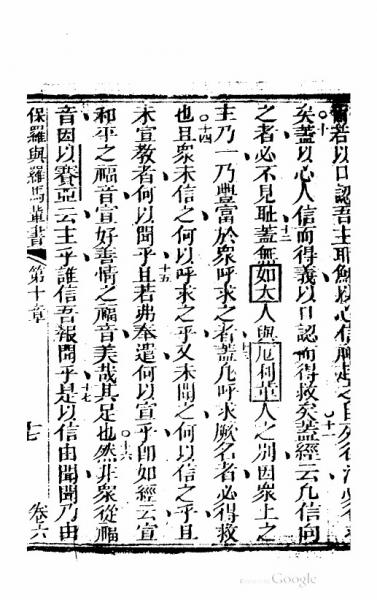 若以口認吾主耶穌以心信
十 十一
矣蓋以心人信而得義以口認而得救矣蓋經云凡信向
十二
之者必不見恥蓋無如大人與厄利革人之別因衆上之
十三
主乃一乃豐富於衆呼求之者蓋凡呼求厥名者必得救
十四
也且衆未信之何以呼求之乎又未聞之何以信之乎且
十五
未宣教者何以聞乎且若弗奉遣何以宣乎卽如經云宣
十六
和平之福音宣好善情之福音美哉其足也然非衆從福
十七
音因以賽亞云主乎誰信吾報聞乎是以信由聞聞乃由
保羅與羅馬輩書 第十章 十七 卷六
Google